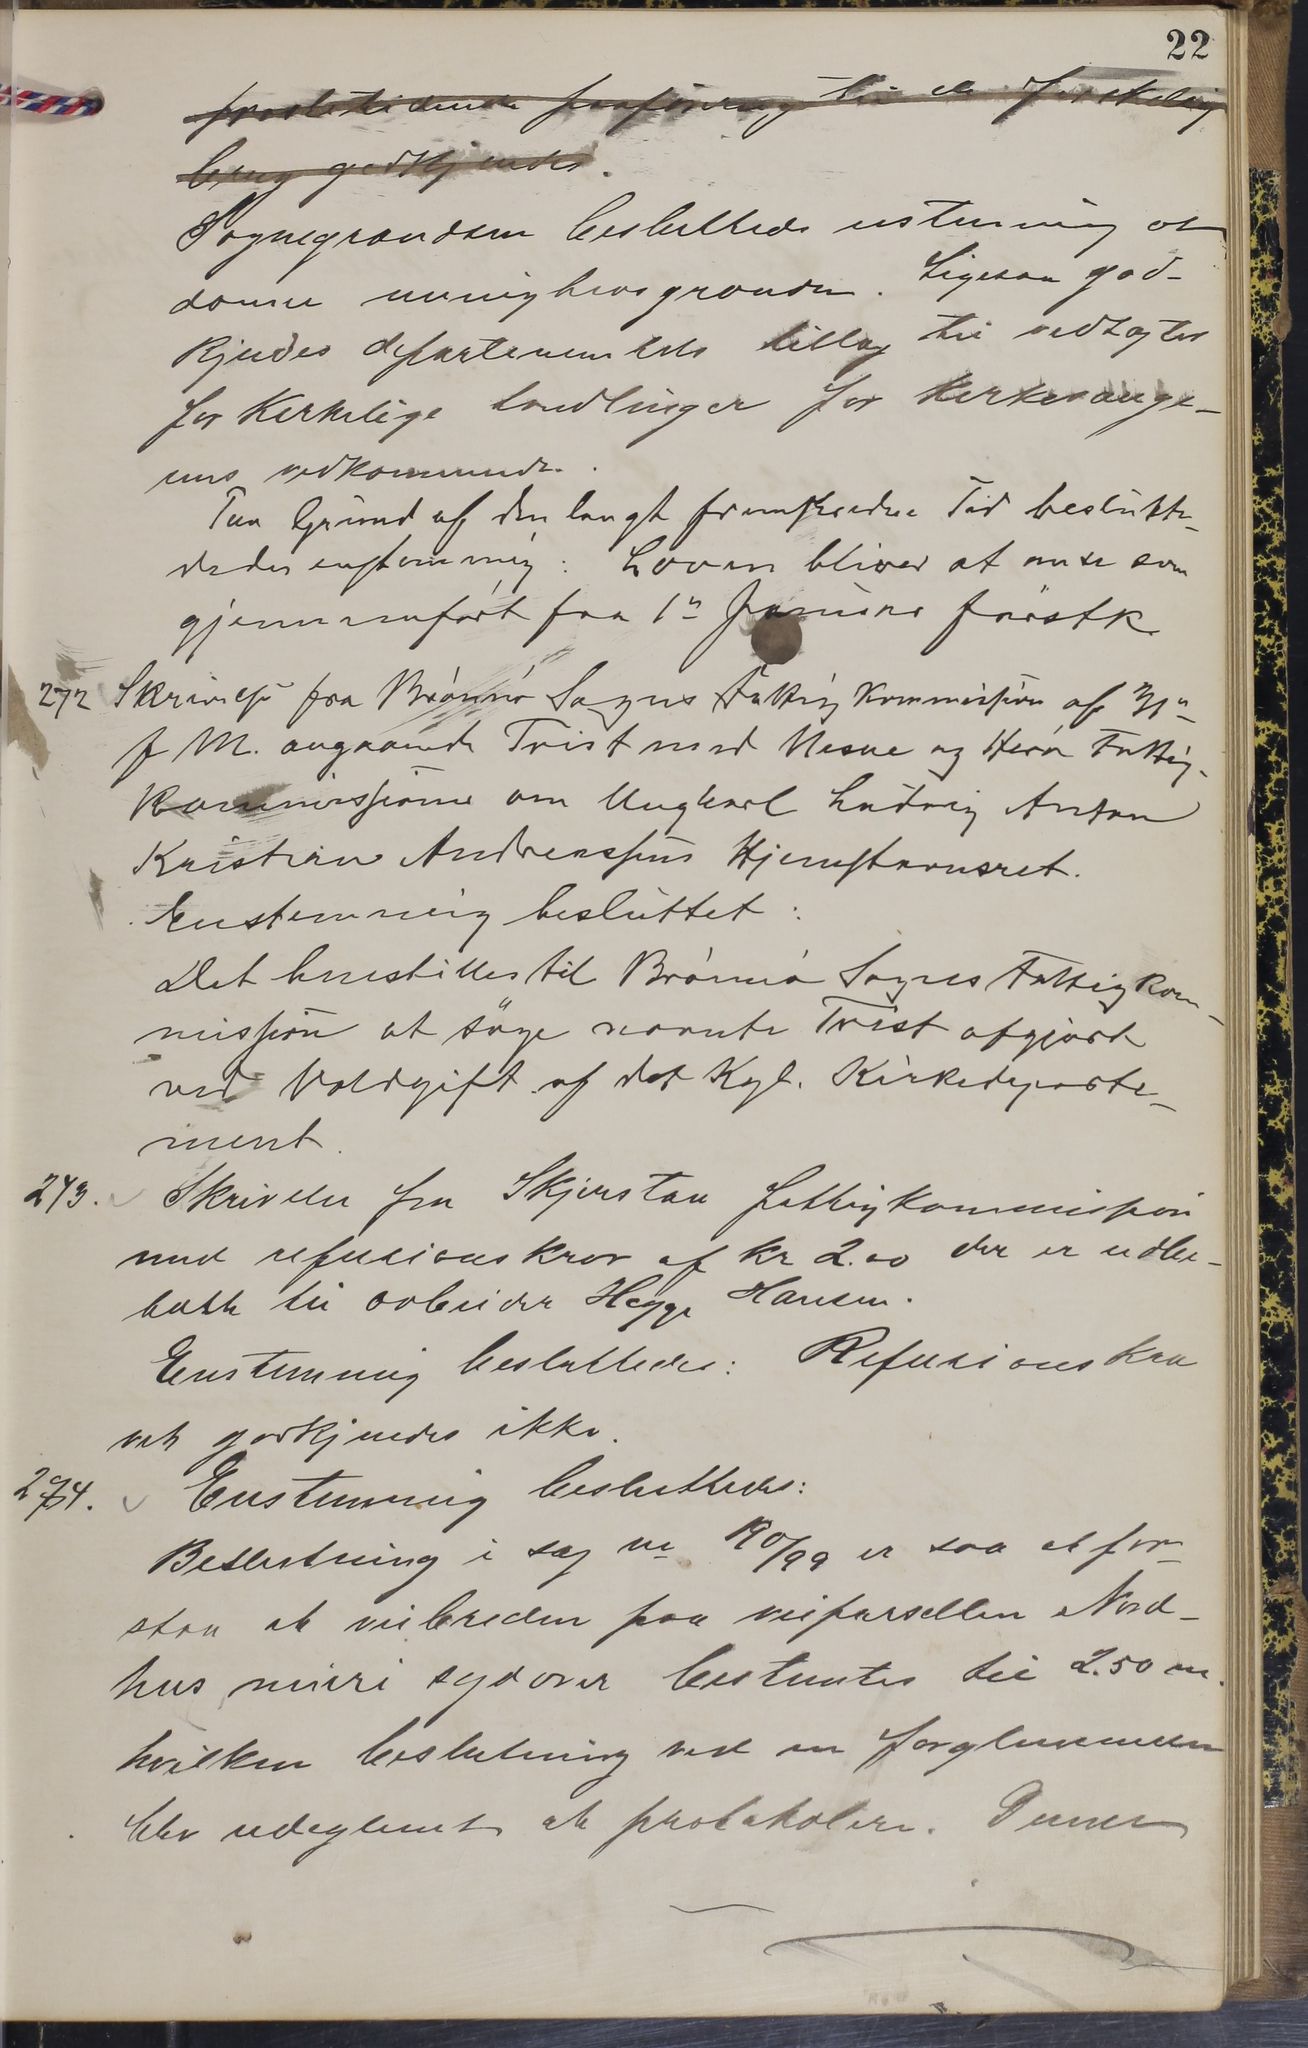 22
godkjendes.
Sognegrændsen besluttedes
danne grændsen. Ligesaa god-
kjendes departementets tillæg til vedtægter
for Kirkelige handlinger for Kirkesange-
rens vedkommende.
Paa Grund af den langt fremskredne Tid beslutte-
des enstemmig: Loven bliver at anse som
gjennemført fra 1ste Januar førstk.
272 Skrivelse fra Brønnø Sogns Fattigkommission af
f M. angaaende Tvist med Nesne og Herø Fattig-
kommissioner om Ungkarl Ludvig Anton
Kristian Andreassens Hjemstavnsret.
Enstemmig besluttet:
Det henstilles til Brønnø Sogns Fattigkom-
mission at søge nævnte Tvist afgjort
ved Voldgift af det Kgl. Kirkedeparte-
ment.
273. Skrivelse fra Skjerstad fattigkommission
med refusionskrav af kr 2.00 der er udbe-
talt til arbeider Hansen.
Enstemmig besluttedes: Refusionskra
vet godkjendes ikke.
274. Enstemmig besluttedes:
Beslutning i sag nr /99 er saa at for-
staa at veibreden paa veiparsellen Nord-
hus sydover bestemtes til 2.50 m.
hvilken beslutning ved en forglemmelse
blev udeglemt at protokolere. Denne